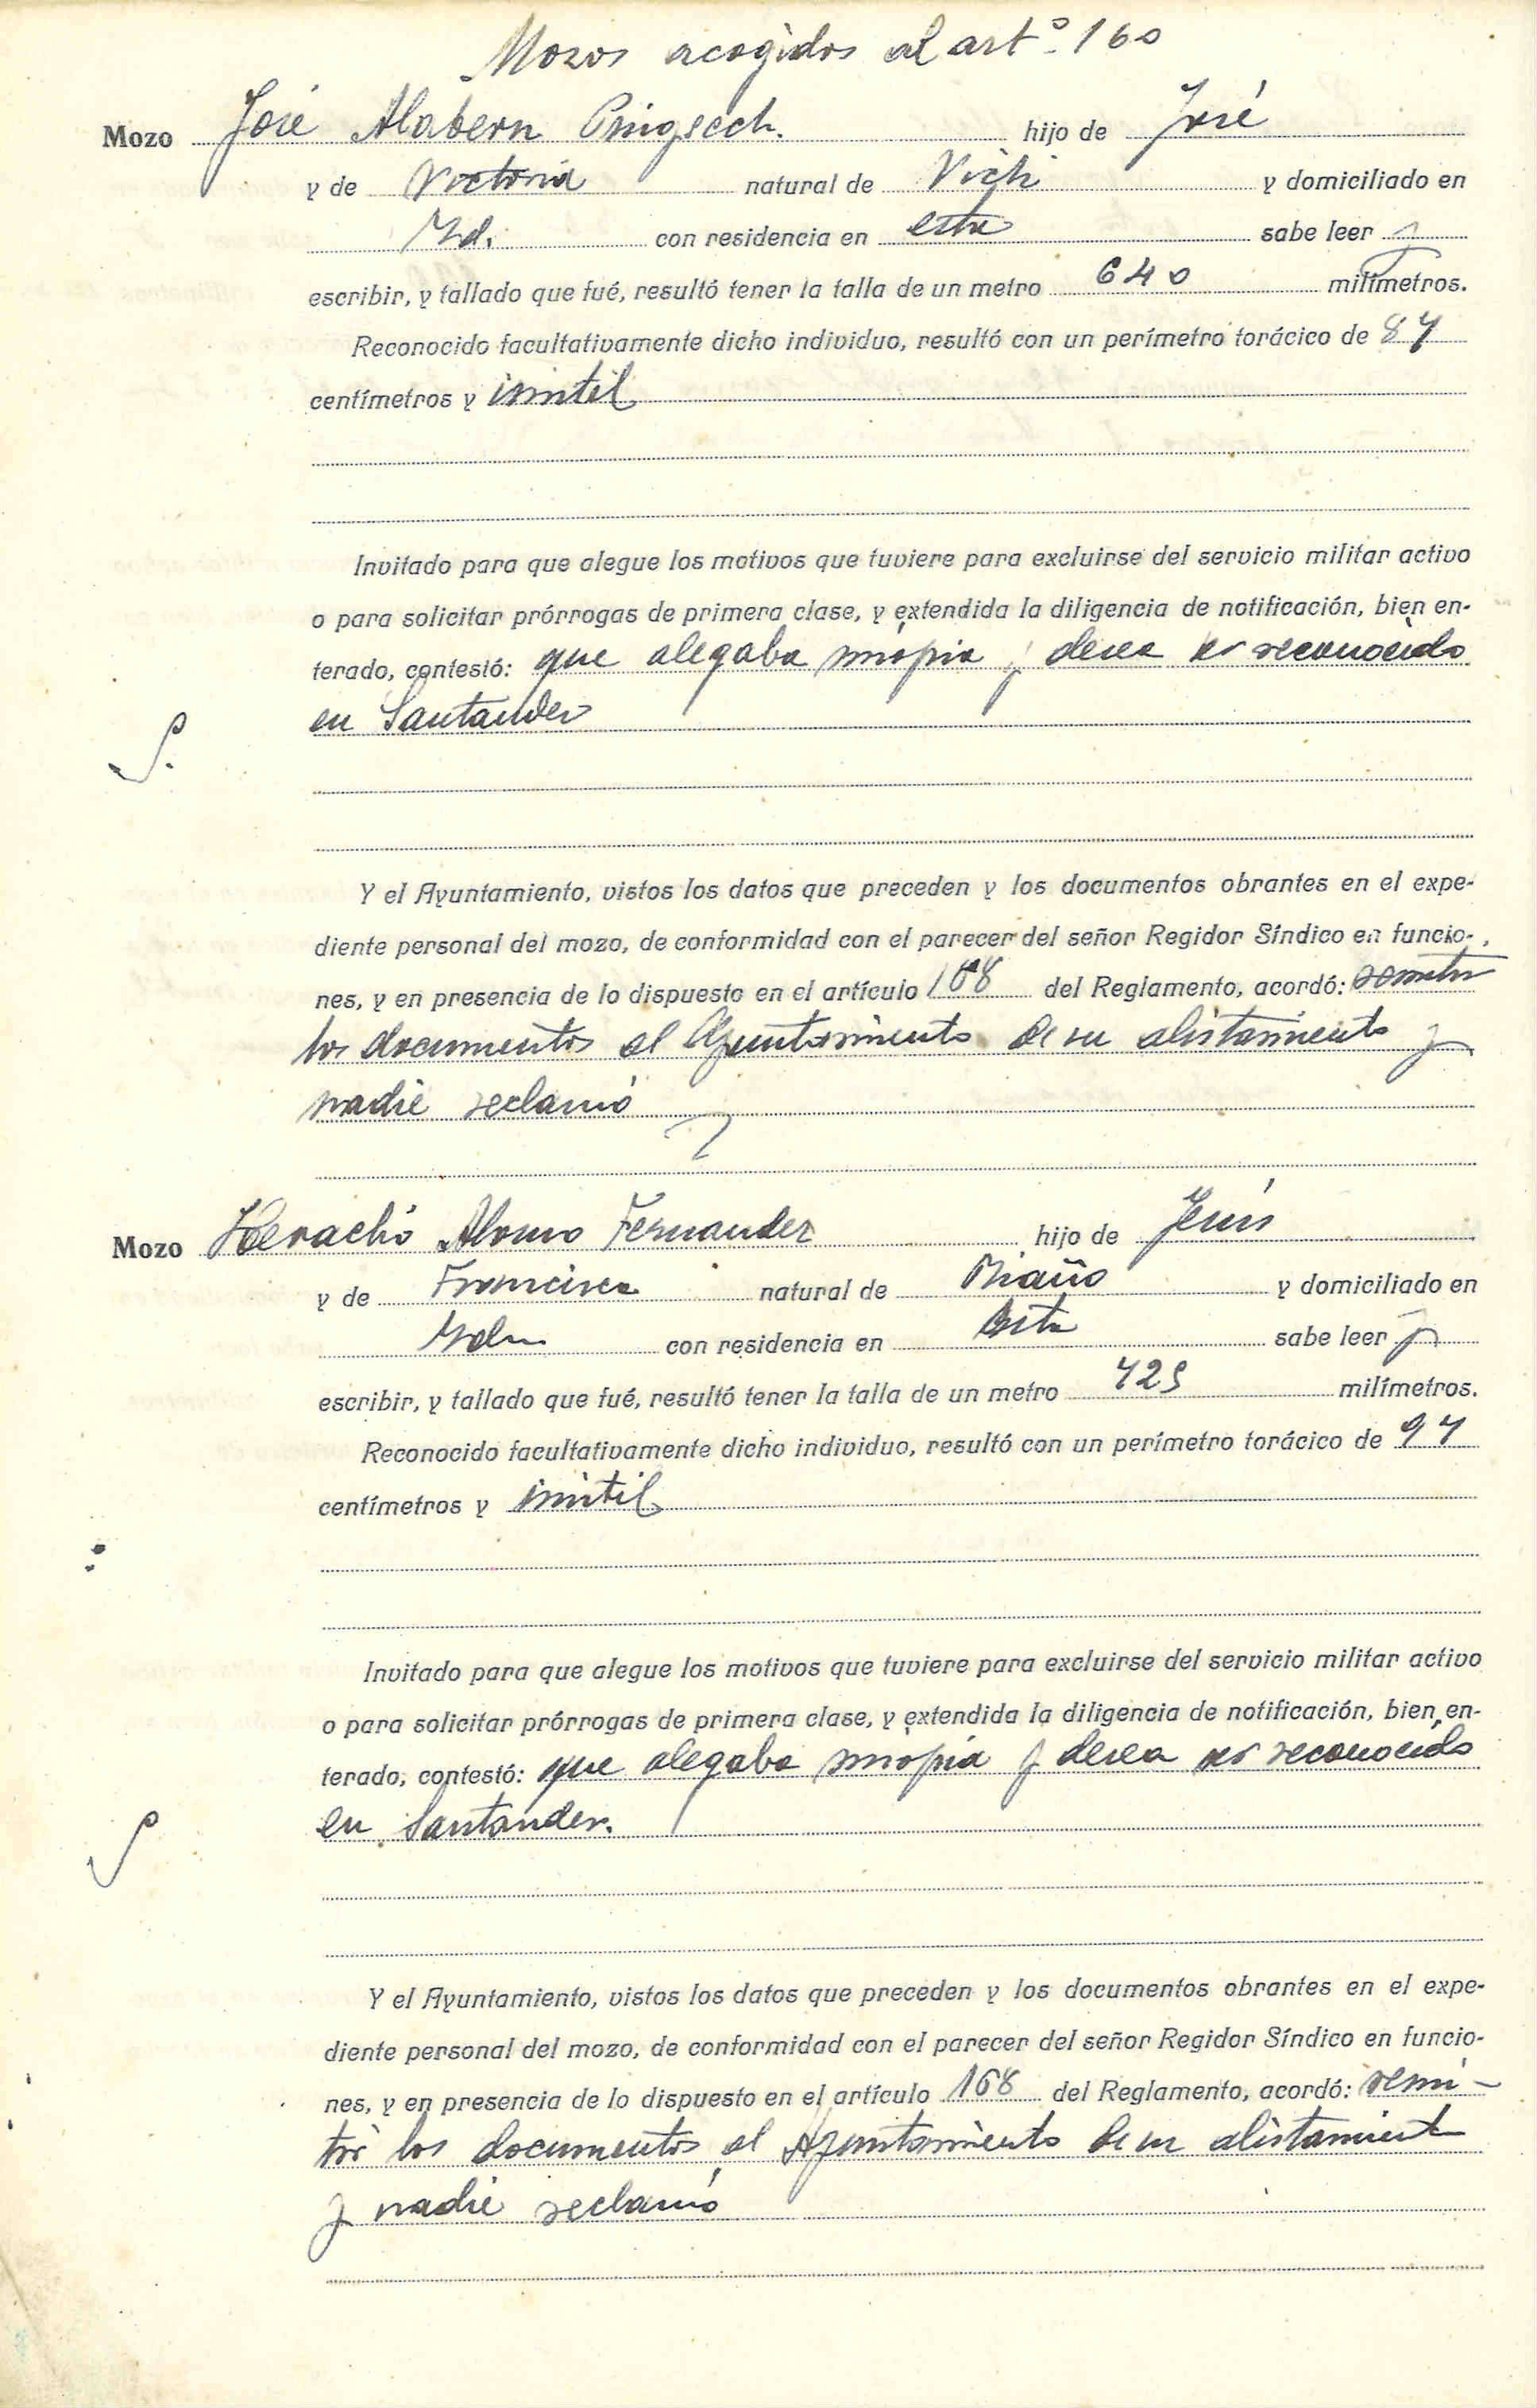 Mozos acogidos al artº 160
Mozo José Alabern Puigsech. hijo de José
y de Victoria natural de Vich y domiciliado en
Id. con residencia en esta sabe leer y
escribir, y tallado que fué, resultó tener la talla de un metro 640 milímetros.
Reconocido facultativamente dicho individuo, resultó con un perímetro torácico de 87
centímetros y inútil
Invitado para que alegue los motivos que tuviere para excluirse del servicio militar activo
o para solicitar prórrogas de primera clase, y extendida la diligencia de notificación, bien en-
terado, contestó: que alegaba miopia y desea ser reconocido
en Santander
S.
Y el Ayuntamiento, vistos los datos que preceden y los documentos obrantes en el expe-
diente personal del mozo, de conformidad con el parecer del señor Regidor Síndico en funcio-
nes, y en presencia de lo dispuesto en el artículo 168 del Reglamento, acordó: remitir
los documentos al Ayuntamiento de su alistamiento y
nadie reclamó
Mozo Heraclio Alonso Fernandez hijo de Jesús
y de Francisca natural de Riaño y domiciliado en
Idm con residencia en esta sabe leer y
escribir, y tallado que fué, resultó tener la talla de un metro 725 milímetros.
Reconocido facultativamente dicho individuo, resultó con un perímetro torácico de 97
centímetros y inútil
Invitado para que alegue los motivos que tuviere para excluirse del servicio militar activo
o para solicitar prórrogas de primera clase, y extendida la diligencia de notificación, bien en-
terado, contestó: que alegaba miopia y desea ser reconocido
en Santander.
S
Y el Ayuntamiento, vistos los datos que preceden y los documentos obrantes en el expe-
diente personal del mozo, de conformidad con el parecer del señor Regidor Síndico en funcio-
nes, y en presencia de lo dispuesto en el artículo 168 del Reglamento, acordó: remi-
tir los documentos al Ayuntamiento de su alistamient
y nadie reclamó